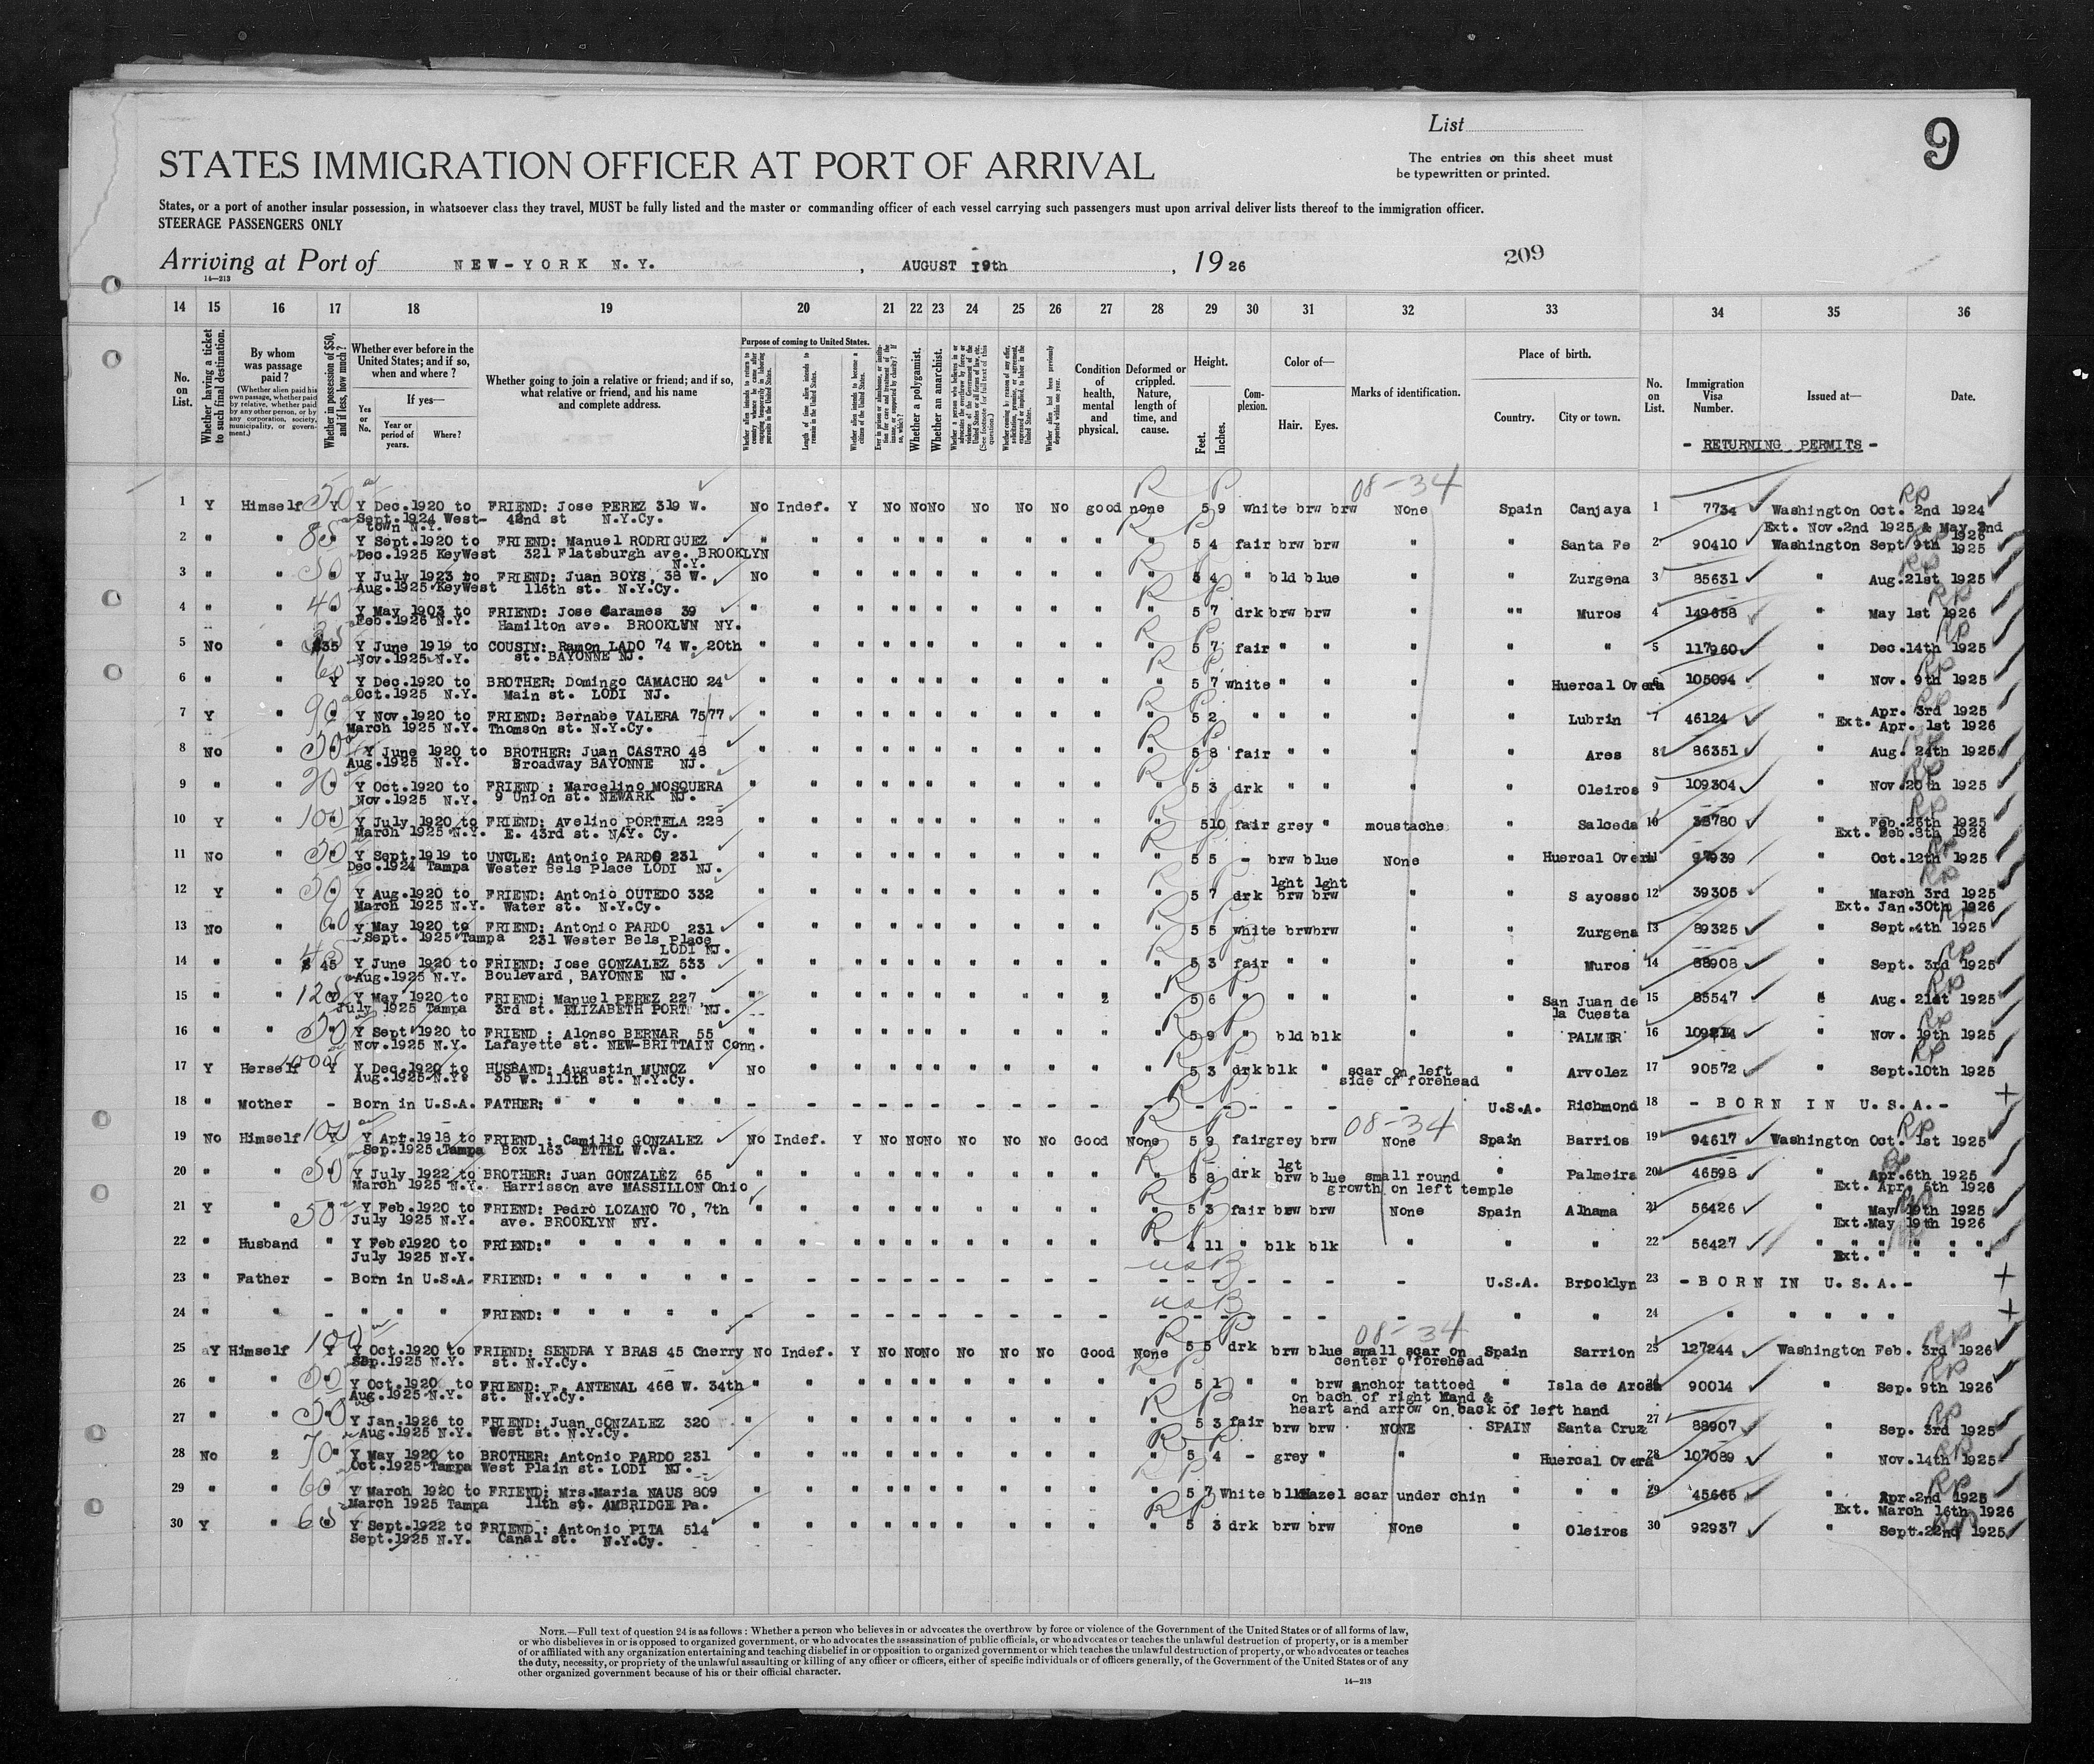 List
9
STATES IMMIGRATION OFFICER AT PORT OF ARRIVAL
The entries on this sheet must
be typewritten or printed.
States, or a port of another insular possession, in whatsoever class they travel, MUST be fully listed and the master or commanding officer of each vessel carrying such passengers must upon arrival deliver lists thereof to the immigration officer.
STEERAGE PASSENGERS ONLY
Arriving at Port of NEW-YORK N.Y. , AUGUST 19th , 1926
209
14—213
14 15 16 17 18 19 20 21 22 23 24 25 26 27 28 29 30 31 32 33 34 35 36
No. on List.
Whether having a ticket to such final destination.
By whom was passage paid?
(Whether alien paid his own passage, whether paid by relative, whether paid by any other person, or by any corporation, society, municipality, or government.)
Whether in possession of $50, and if less, how much?
Whether ever before in the United States; and if so, when and where?
Yes or No.
If yes—
Year or period of years.
Where?
Whether going to join a relative or friend; and if so, what relative or friend, and his name and complete address.
Purpose of coming to United States.
Length of time alien intends to remain in the United States.
Whether alien intends to become a citizen of the United States.
Whether a polygamist.
Whether an anarchist.
Condition of health, mental and physical.
Deformed or crippled. Nature, length of time, and cause.
Height.
Feet. Inches.
Complexion.
Color of—
Hair. Eyes.
Marks of identification.
Place of birth.
Country. City or town.
No. on List.
Immigration Visa Number.
Issued at—
Date.
- RETURNING PERMITS -
08-34
1 Y Himself 50 Y Y Dec.1920 to FRIEND: Jose PEREZ 319 W. No Indef. Y No No No No No No good none 5 9 white brw brw None Spain Canjaya 1 7734 Washington Oct. 2nd 1924
Sept.1924 West- 42nd st N.Y.Cy. Ext. Nov.2nd 1925 & May 2nd
town N.Y. 1926
2 " " 85 " Y Sept.1920 to FRIEND: Manuel RODRIGUEZ " " " " " " " " " " " 5 4 fair brw brw " " Santa Fe 2 90410 Washington Sept 9th 1925
Dec.1925 KeyWest 321 Flatsburgh ave. BROOKLYN
N.Y.
3 " " 50 " Y July 1923 to FRIEND: Juan BOYS, 38 W. No " " " " " " " " " " 5 4 " bld blue " " Zurgena 3 85631 " Aug.21st 1925
Aug.1925 KeyWest 116th st. N.Y.Cy.
4 " " 40 " Y May 1903 to FRIEND: Jose Carames 39 " " " " " " " " " " " 5 7 drk brw brw " "" Muros 4 149658 " May 1st 1926
Feb.1926 N.Y. Hamilton ave. BROOKLYN NY.
5 No " $35 Y June 1919 to COUSIN: Ramon LADO 74 W. 20th " " " " " " " " " " " 5 7 fair " " " " " 5 117960 " Dec.14th 1925
Nov.1925 N.Y. st. BAYONNE NJ.
6 " " 60 Y Y Dec.1920 to BROTHER: Domingo CAMACHO 24 " " " " " " " " " " " 5 7 white " " " " Huercal Overa 6 105094 " Nov. 9th 1925
Oct.1925 N.Y. Main st. LODI NJ.
7 Y " 90 " Y Nov.1920 to FRIEND: Bernabe VALERA 75/77 " " " " " " " " " " " 5 2 " " " " " Lubrin 7 46124 " Apr. 3rd 1925
March 1925 N.Y. Thomson st. N.Y.Cy. Ext. Apr. 1st 1926
8 No " 50 " Y June 1920 to BROTHER: Juan CASTRO 48 " " " " " " " " " " " 5 8 fair " " " " Ares 8 86351 " Aug. 24th 1925
Aug.1925 N.Y. Broadway BAYONNE NJ.
9 " " 20 " Y Oct.1920 to FRIEND : Marcelino MOSQUERA " " " " " " " " " " " 5 3 drk " " " " Oleiros 9 109304 " Nov.20th 1925
Nov.1925 N.Y. 9 Union st. NEWARK NJ.
10 Y " 100 " Y July 1920 to FRIEND: Avelino PORTELA 228 " " " " " " " " " " " 5 10 fair grey " moustache " Salceda 10 38780 " Feb.25th 1925
March 1925 N.Y. E. 43rd st. N.Y. Cy. Ext. Feb.8th 1926
11 No " 50 " Y Sept.1919 to UNCLE: Antonio PARDO 231 " " " " " " " " " " " 5 5 - brw blue None " Huercal Overa 11 97939 " Oct.12th 1925
Dec.1924 Tampa Wester Bels Place LODI NJ.
12 Y " 50 " Y Aug.1920 to FRIEND: Antonio OUTEDO 332 " " " " " " " " " " " 5 7 drk lght brw lght brw " " Sayosso 12 39305 " March 3rd 1925
March 1925 N.Y. Water st. N.Y.Cy. Ext. Jan.30th 1926
13 No " 60 " Y May 1920 to FRIEND: Antonio PARDO 231 " " " " " " " " " " " 5 5 white brw brw " " Zurgena 13 89325 " Sept.4th 1925
Sept. 1925 Tampa 231 Wester Bels Place
LODI NJ.
14 " " $ 45 Y June 1920 to FRIEND: Jose GONZALEZ 533 " " " " " " " " " " " 5 3 fair " " " " Muros 14 88908 " Sept. 3rd 1925
Aug.1925 N.Y. Boulevard, BAYONNE NJ.
15 " " 125 Y Y May 1920 to FRIEND: Manuel PEREZ 227 " " " " " " " " " 2 " 5 6 " " " " " San Juan de 15 85547 " Aug. 21st 1925
July 1925 Tampa 3rd st. ELIZABETH PORT NJ. la Cuesta
16 " " 50 " Y Sept 1920 to FRIEND : Alonso BERNAR 55 " " " " " " " " " " " 5 9 " bld blk " " PALMER 16 109214 " Nov. 19th 1925
Nov.1925 N.Y. Lafayette st. NEW-BRITTAIN Conn.
17 Y Herself 1000 Y Y Dec.1920 to HUSBAND: Augustin MUNOZ No " " " " " " " " " " 5 3 drk blk " scar on left " Arvolez 17 90572 " Sept.10th 1925
Aug.1925 N.Y. 35 W. 111th st. N.Y.Cy. side of forehead
18 " Mother - Born in U.S.A. FATHER: " " " " " - - - - - - - - - - - - - - - - - - U.S.A. Richmond 18 - BORN IN U.S.A. -
08-34
19 No Himself 100 Y Y Apr.1918 to FRIEND : Camilio GONZALEZ No Indef. Y No No No No No No Good None 5 9 fair grey brw None Spain Barrios 19 94617 Washington Oct. 1st 1925
Sep.1925 Tampa Box 163 ETTEL W.Va.
20 " " 50 " Y July 1922 to BROTHER: Juan GONZALEZ 65 " " " " " " " " " " " 5 8 drk lgt brw blue small round " Palmeira 20 46598 " Apr.6th 1925
March 1925 N.Y. Harrisson ave MASSILLON Ohio growth on left temple Ext. Apr. 6th 1926
21 Y " 50 " Y Feb.1920 to FRIEND: Pedro LOZANO 70 , 7th " " " " " " " " " " " 5 3 fair brw brw None Spain Alhama 21 56426 " May 19th 1925
July 1925 N.Y. ave. BROOKLYN NY. Ext.May 19th 1926
22 " Husband " Y Feb.1920 to FRIEND: " " " " " " " " " " " " " " " " " 4 11 " blk blk " " " 22 56427 " " " " "
July 1925 N.Y. Ext. " " " "
USB
23 " Father - Born in U.S.A. FRIEND: " " " " " " - - - - - - - - - - - - - - - - - U.S.A. Brooklyn 23 -BORN IN U.S.A.-
USB
24 " " - " " " FRIEND: " " " " " - - - - - - - - - - - - - - - - - " " 24 " " " " " "
08-34
25 Y Himself 100 Y Y Oct.1920 to FRIEND: SENDRA Y BRAS 45 Cherry No Indef. Y No No No No No No Good None 5 5 drk brw blue small scar on Spain Sarrion 25 127244 Washington Feb. 3rd 1926
Sep.1925 N.Y. st. N.Y.Cy. center o forehead
26 " " 50 " Y Oct.1920 to FRIEND: F. ANTENAL 466 W. 34th " " " " " " " " " " " 5 1 " " brw anchor tattoed " Isla de Arosa 26 90014 " Sep. 9th 1926
Aug.1925 N.Y. st. N.Y.Cy. on bach of right Hand &
heart and arrow on back of left hand
27 " " 50 " Y Jan.1926 to FRIEND: Juan GONZALEZ 320 " " " " " " " " " " " 5 3 fair brw brw NONE SPAIN Santa Cruz 27 88907 " Sep. 3rd 1925
Aug.1925 N.Y. West st. N.Y.Cy.
28 No " 70 " Y May 1920 to BROTHER: Antonio PARDO 231 " " " " " " " " " " " 5 4 - grey " " " Huercal Overa 28 107089 " Nov.14th 1925
Oct.1925 Tampa West Plain st. LODI NJ.
29 " " 60 " Y March 1920 to FRIEND: Mrs.Maria NAUS 809 " " " " " " " " " " " 5 7 White blk Hazel scar under chin " " " " 29 45666 " Apr.2nd 1925
March 1925 Tampa 11th st. AMBRIDGE Pa. Ext. March 16th 1926
30 Y " 65 " Y Sept.1922 to FRIEND : Antonio PITA 514 " " " " " " " " " " " 5 3 drk brw brw None " Oleiros 30 92937 " Sept.22nd 1925
Sept.1925 N.Y. Canal st. N.Y.Cy.
NOTE.—Full text of question 24 is as follows: Whether a person who believes in or advocates the overthrow by force or violence of the Government of the United States or of all forms of law,
or who disbelieves in or is opposed to organized government, or who advocates the assassination of public officials, or who advocates or teaches the unlawful destruction of property, or is a member
of or affiliated with any organization entertaining and teaching disbelief in or opposition to organized government or which teaches the unlawful destruction of property, or who advocates or teaches
the duty, necessity, or propriety of the unlawful assaulting or killing of any officer or officers, either of specific individuals or of officers generally, of the Government of the United States or of any
other organized government because of his or their official character.
14—213